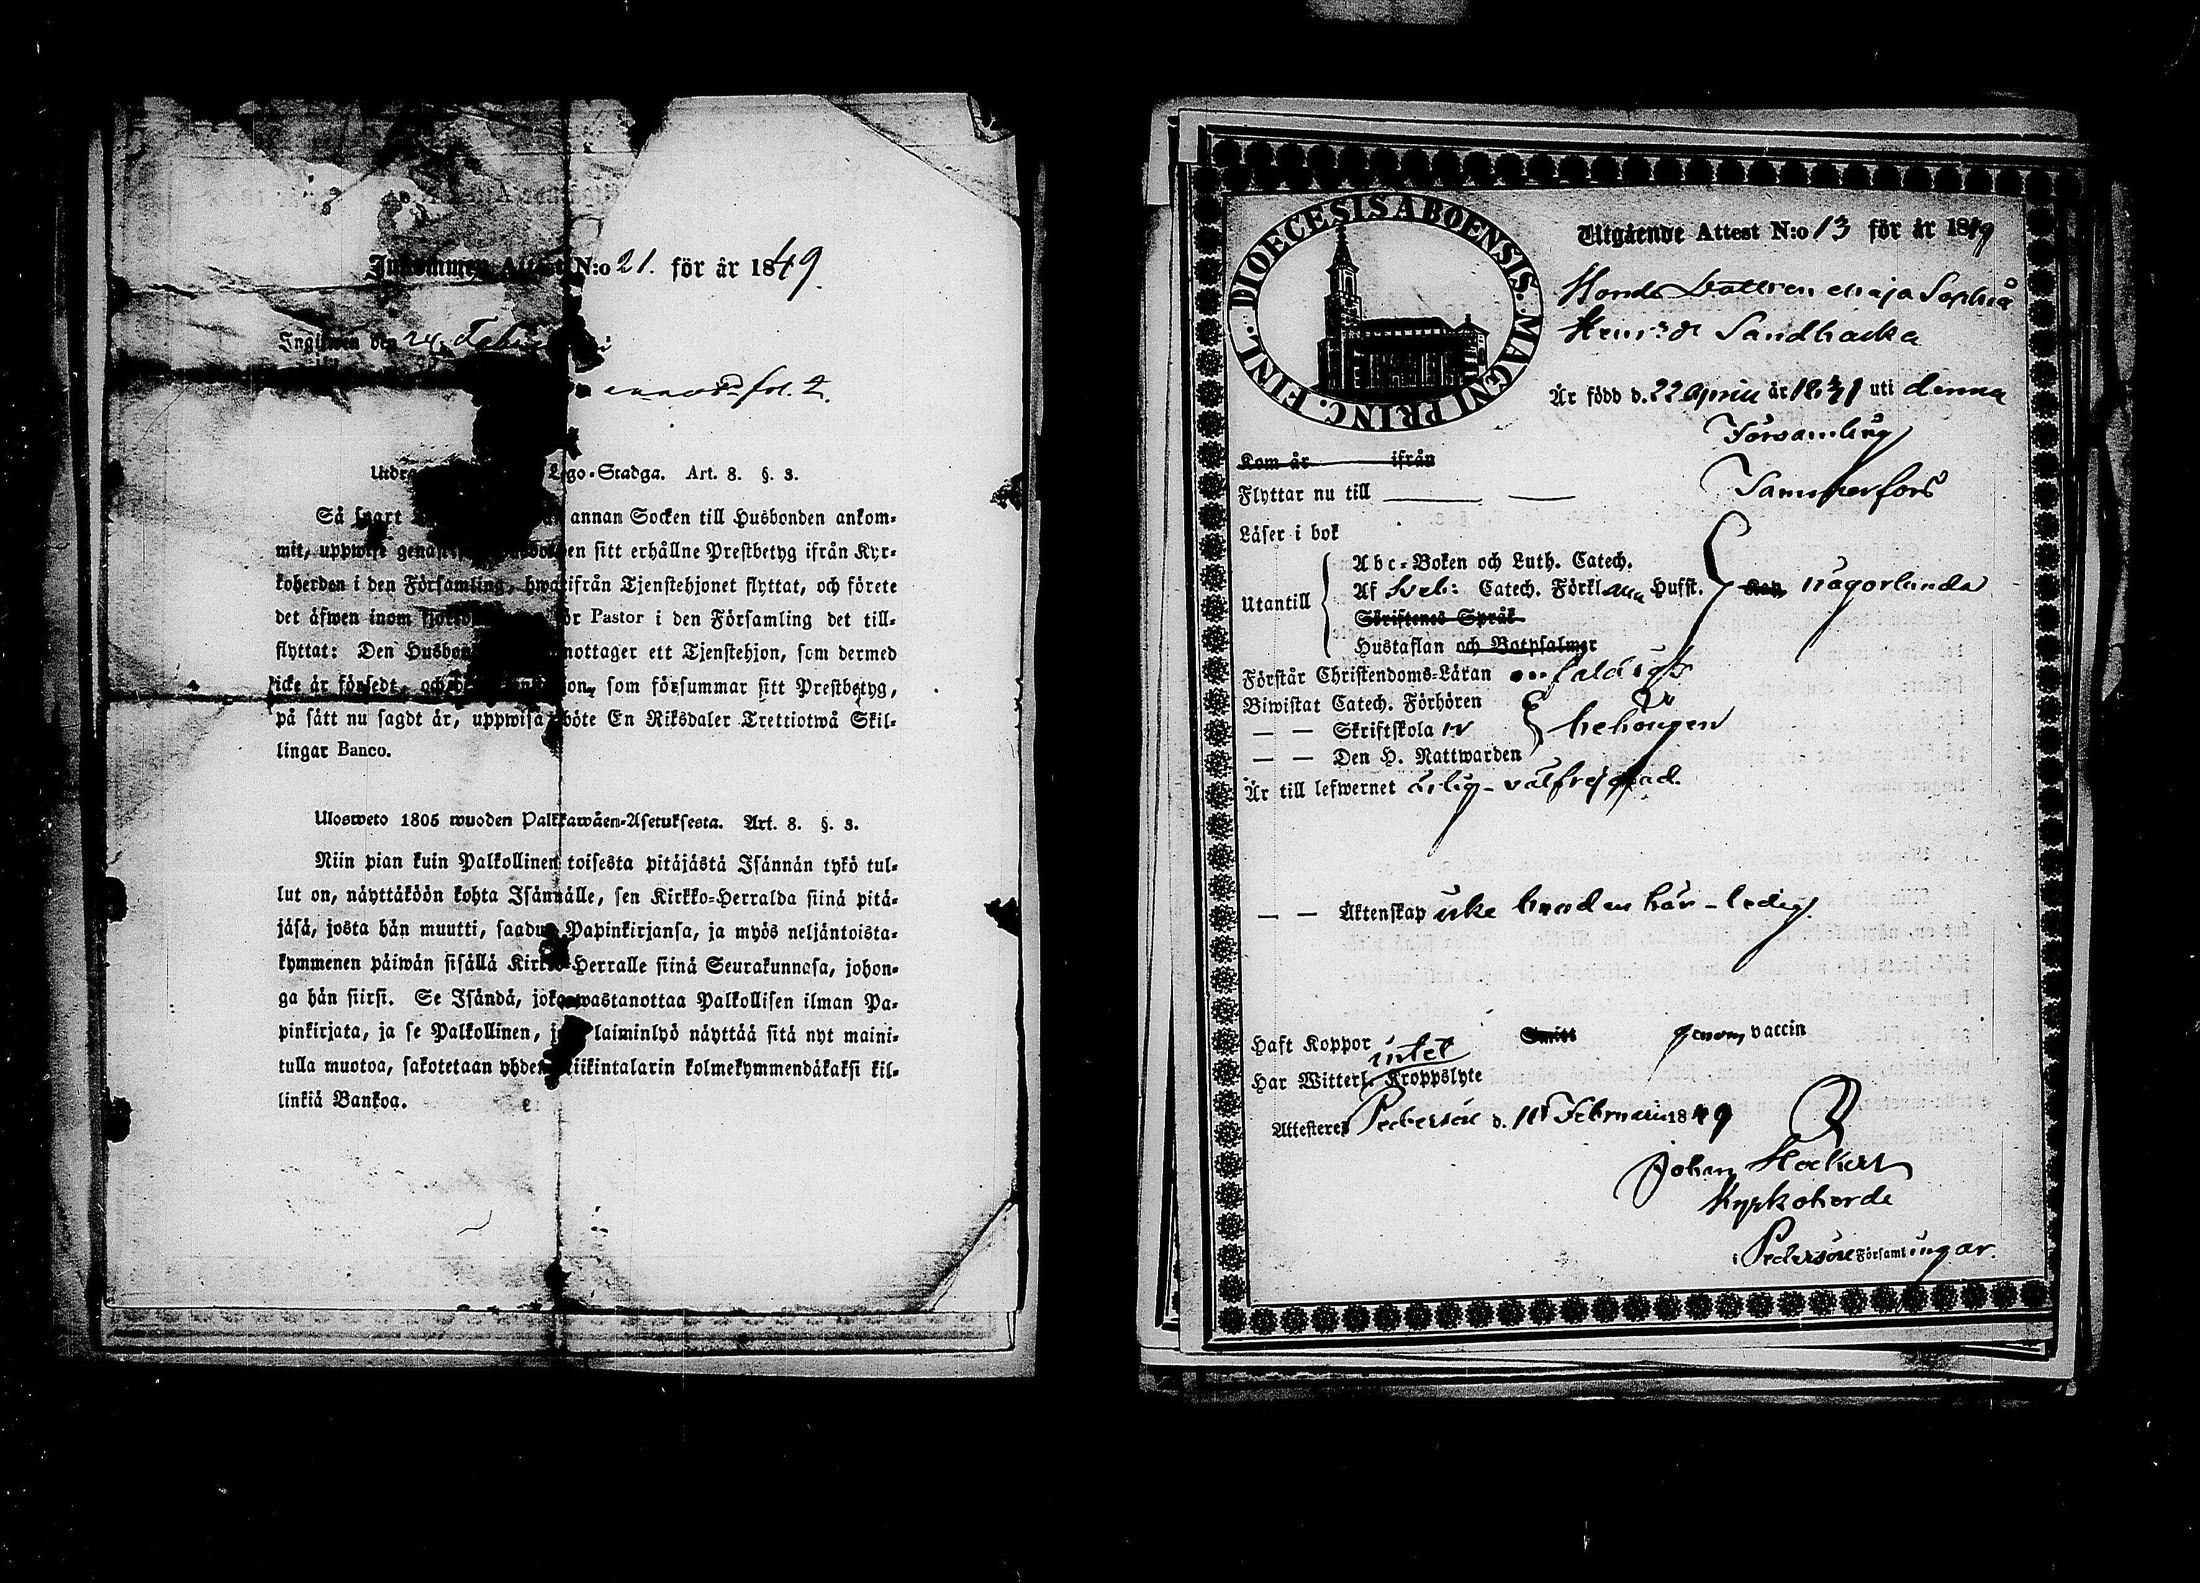 Inkommen Attest N:o 21. för år 1849.
Ingifwen den 24 Febru
fol. 2.
Lego-Stadga. Art. 8. §. 3.
Så snart annan Socken till Husbonden ankom-
mit, uppwise genast sitt erhållne Prestbetyg ifrån Kyr-
koherden i den Församling, hwarifrån Tjenstehjonet flyttat, och förete
det äfwen inom för Pastor i den Församling det till-
flyttat: Den Husbonde mottager ett Tjenstehjon, som dermed
icke är försedt, och som försummar sitt Prestbetyg,
på sätt nu sagdt är, uppwisa, böte En Riksdaler Trettiotwå Skil-
lingar Banco.
Ulosweto 1805 wuoden Palkkawäen-Asetuksesta. Art. 8. §. 3.
Niin pian kuin Palkollinen toisesta pitäjästä Isännän tykö tul-
lut on, näyttäköön kohta Isännälle, sen Kirkko-Herralda siinä pitä-
jäsä, josta hän muutti, saadun Papinkirjansa, ja myös neljäntoista-
kymmenen päiwän sisällä Kirkko-Herralle siinä Seurakunnasa, johon-
ga hän siirsi. Se Isändä, joka wastanottaa Palkollisen ilman Pa-
pinkirjata, ja se Palkollinen, joka laiminlyö näyttää sitä nyt maini-
tulla muotoa, sakotetaan yhden Riikintalarin kolmekymmendäkaksi kil-
linkiä Bankoa.
FINL. DIOECESIS ABOENSIS. MAGNI PRINC.
Utgående Attest N:o 13 för år 1849
Dottren Maja Sophia
Sandbacka
Är född d. 22 April år 1831 uti denna
Församling
Kom år ifrån
Flyttar nu till Tammerfors
Läser i bok
Abc-Boken och Luth. Catech.
Utantill Af Sveb: Catech. Förkl Husst. någorlunda
Skriftenes Språk
Hustaflan och Botpsalmer
Förstår Christendoms-Läran enfaldigt
Biwistat Catech. Förhören
— — Skriftskola behörigen
— — Den H. Nattwarden
Är till lefwernet ärlig - välfrejdad.
— — Äktenskap icke bunden här - ledig.
Haft Koppor Smitt genom vaccin
Har Witterl. Kroppslyte intet
Attesterer Pedersöre d. Februari 1849
Johan
Kyrkoherde
i Pedersöre Församlingar.